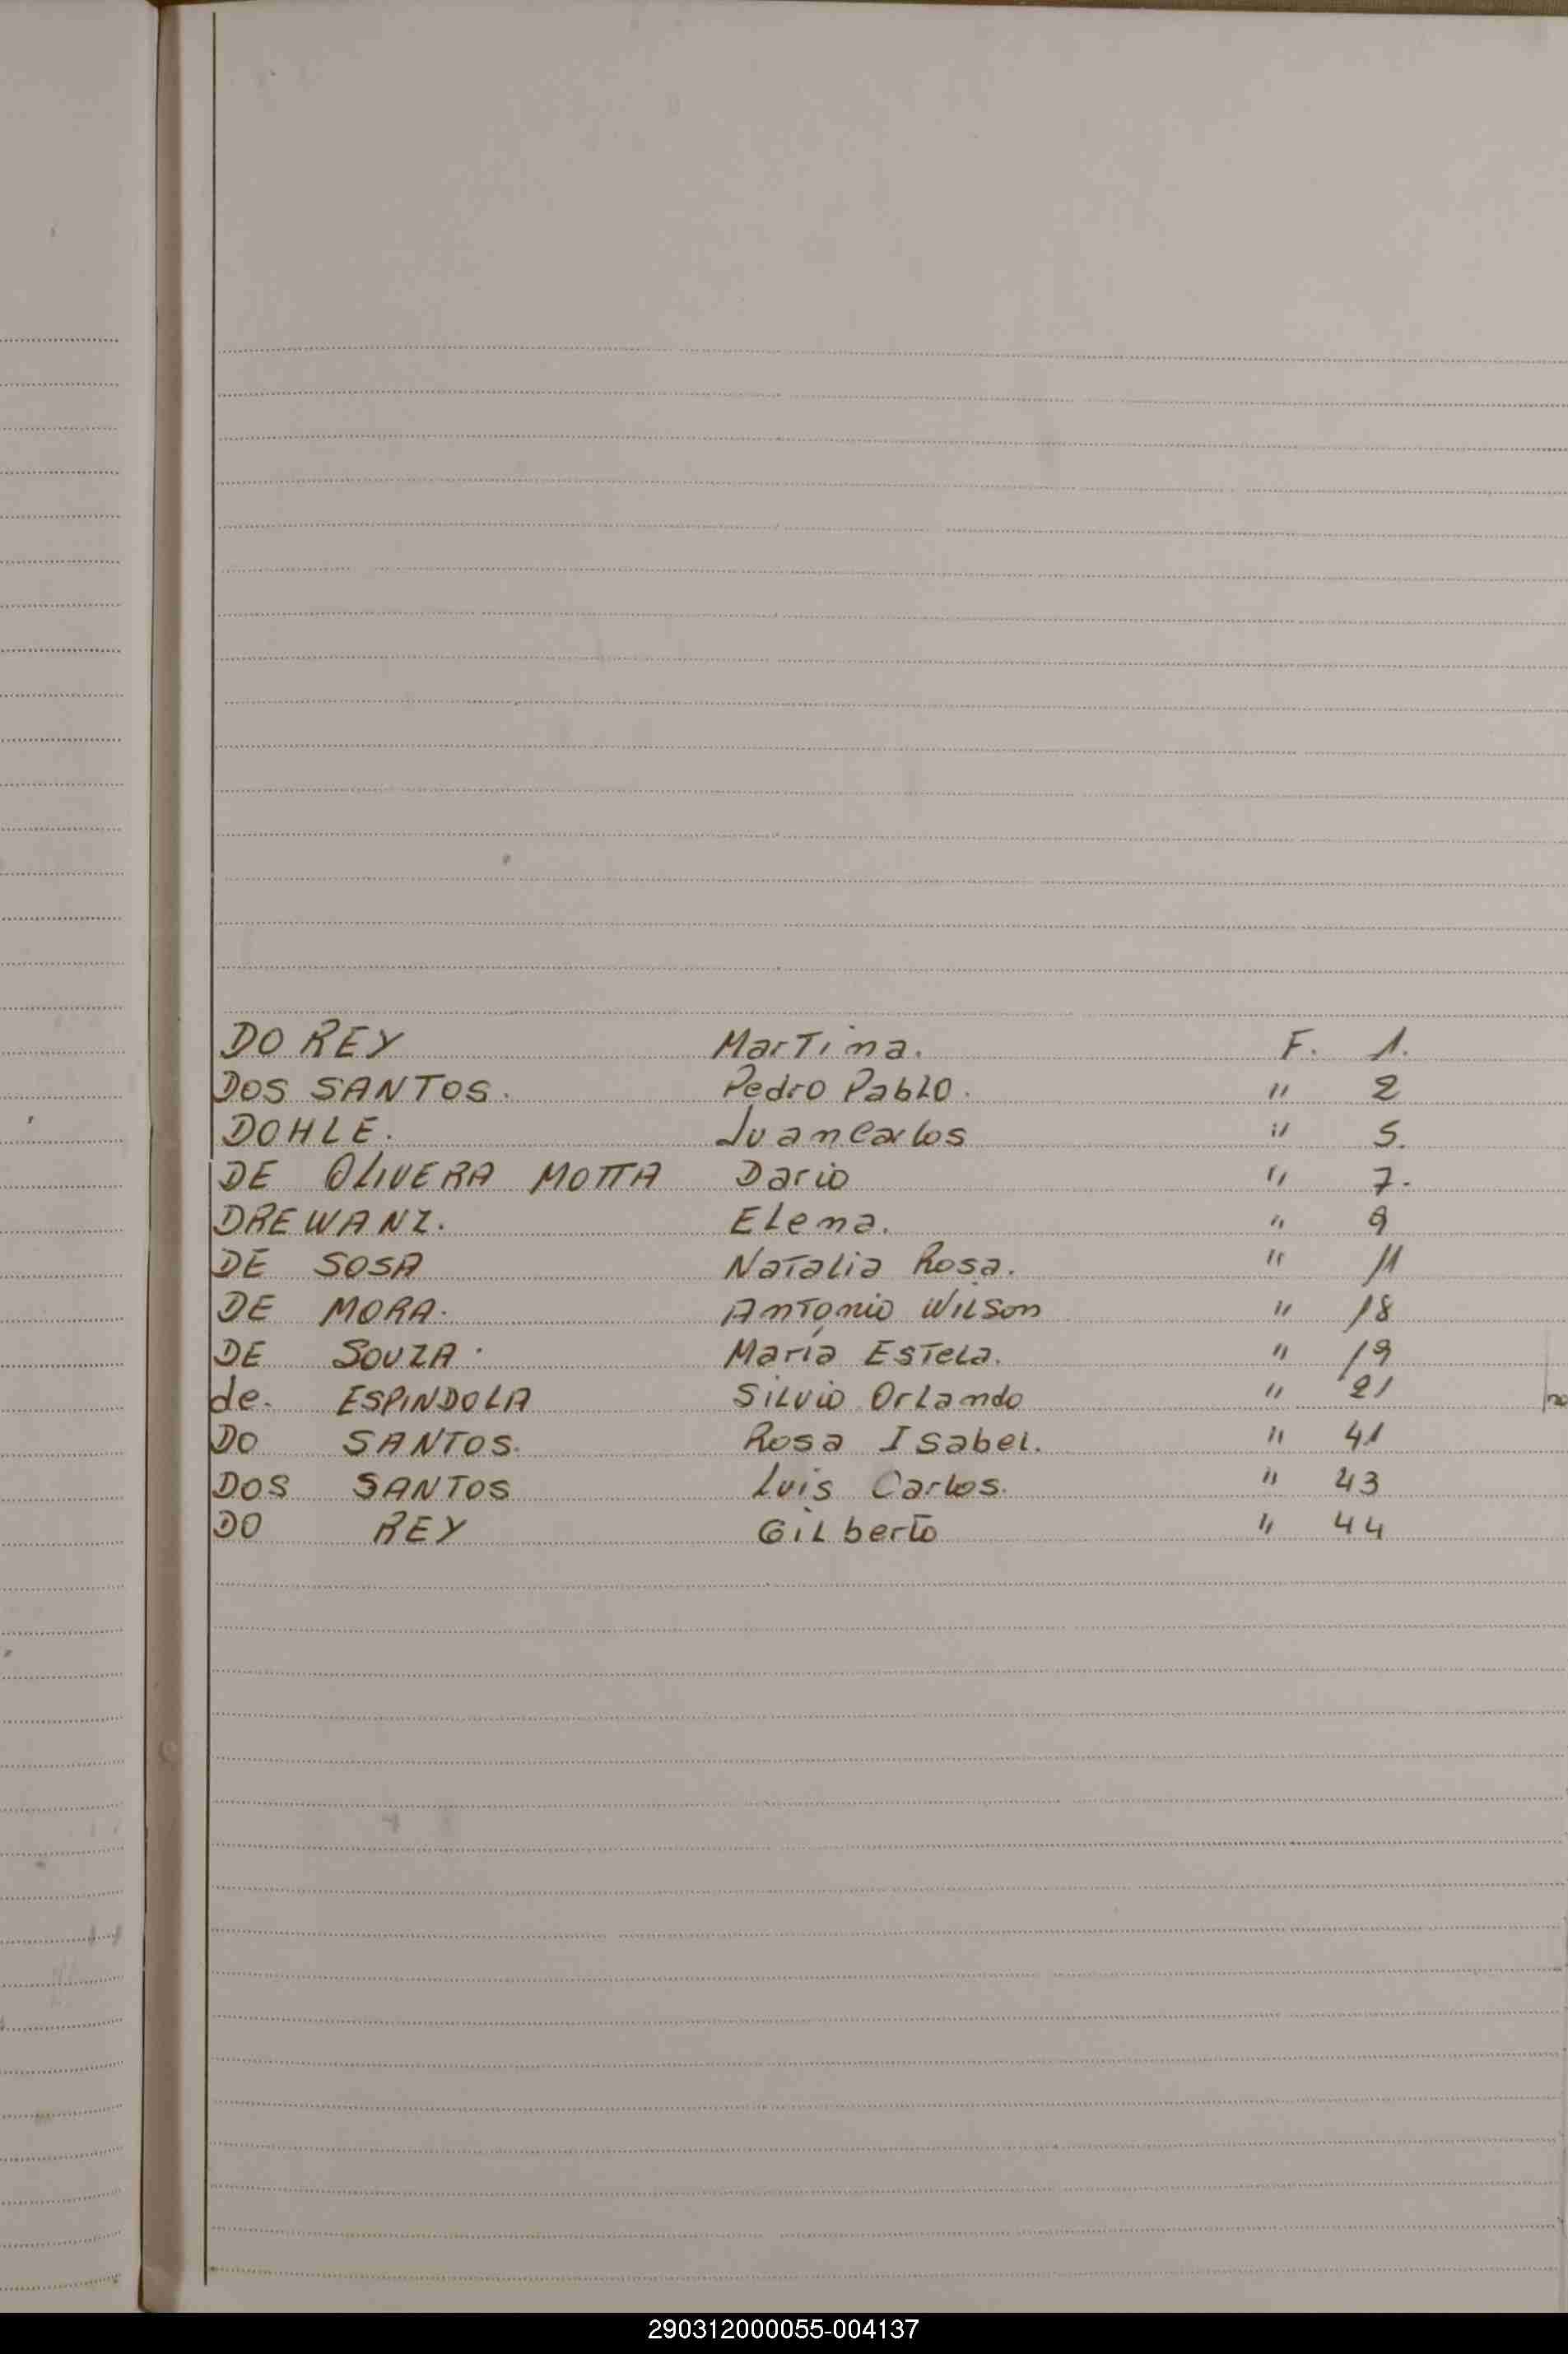 DO REY MarTina. F. 1.
DOS SANTOS. Pedro Pablo. " 2
DOHLE. Juan Carlos " 5.
DE OLIVERA MOTTA Dario " 7.
DREWANZ. Elena. " 9
DE SOSA Natalia Rosa. " 11
DE MORA. Antonio Wilson " 18
DE SOUZA. María Estela. " 19
de. ESPINDOLA Silvio Orlando " 21
DO SANTOS. Rosa Isabel. " 41
DOS SANTOS Luis Carlos. " 43
DO REY Gilberto " 44
290312000055-004137